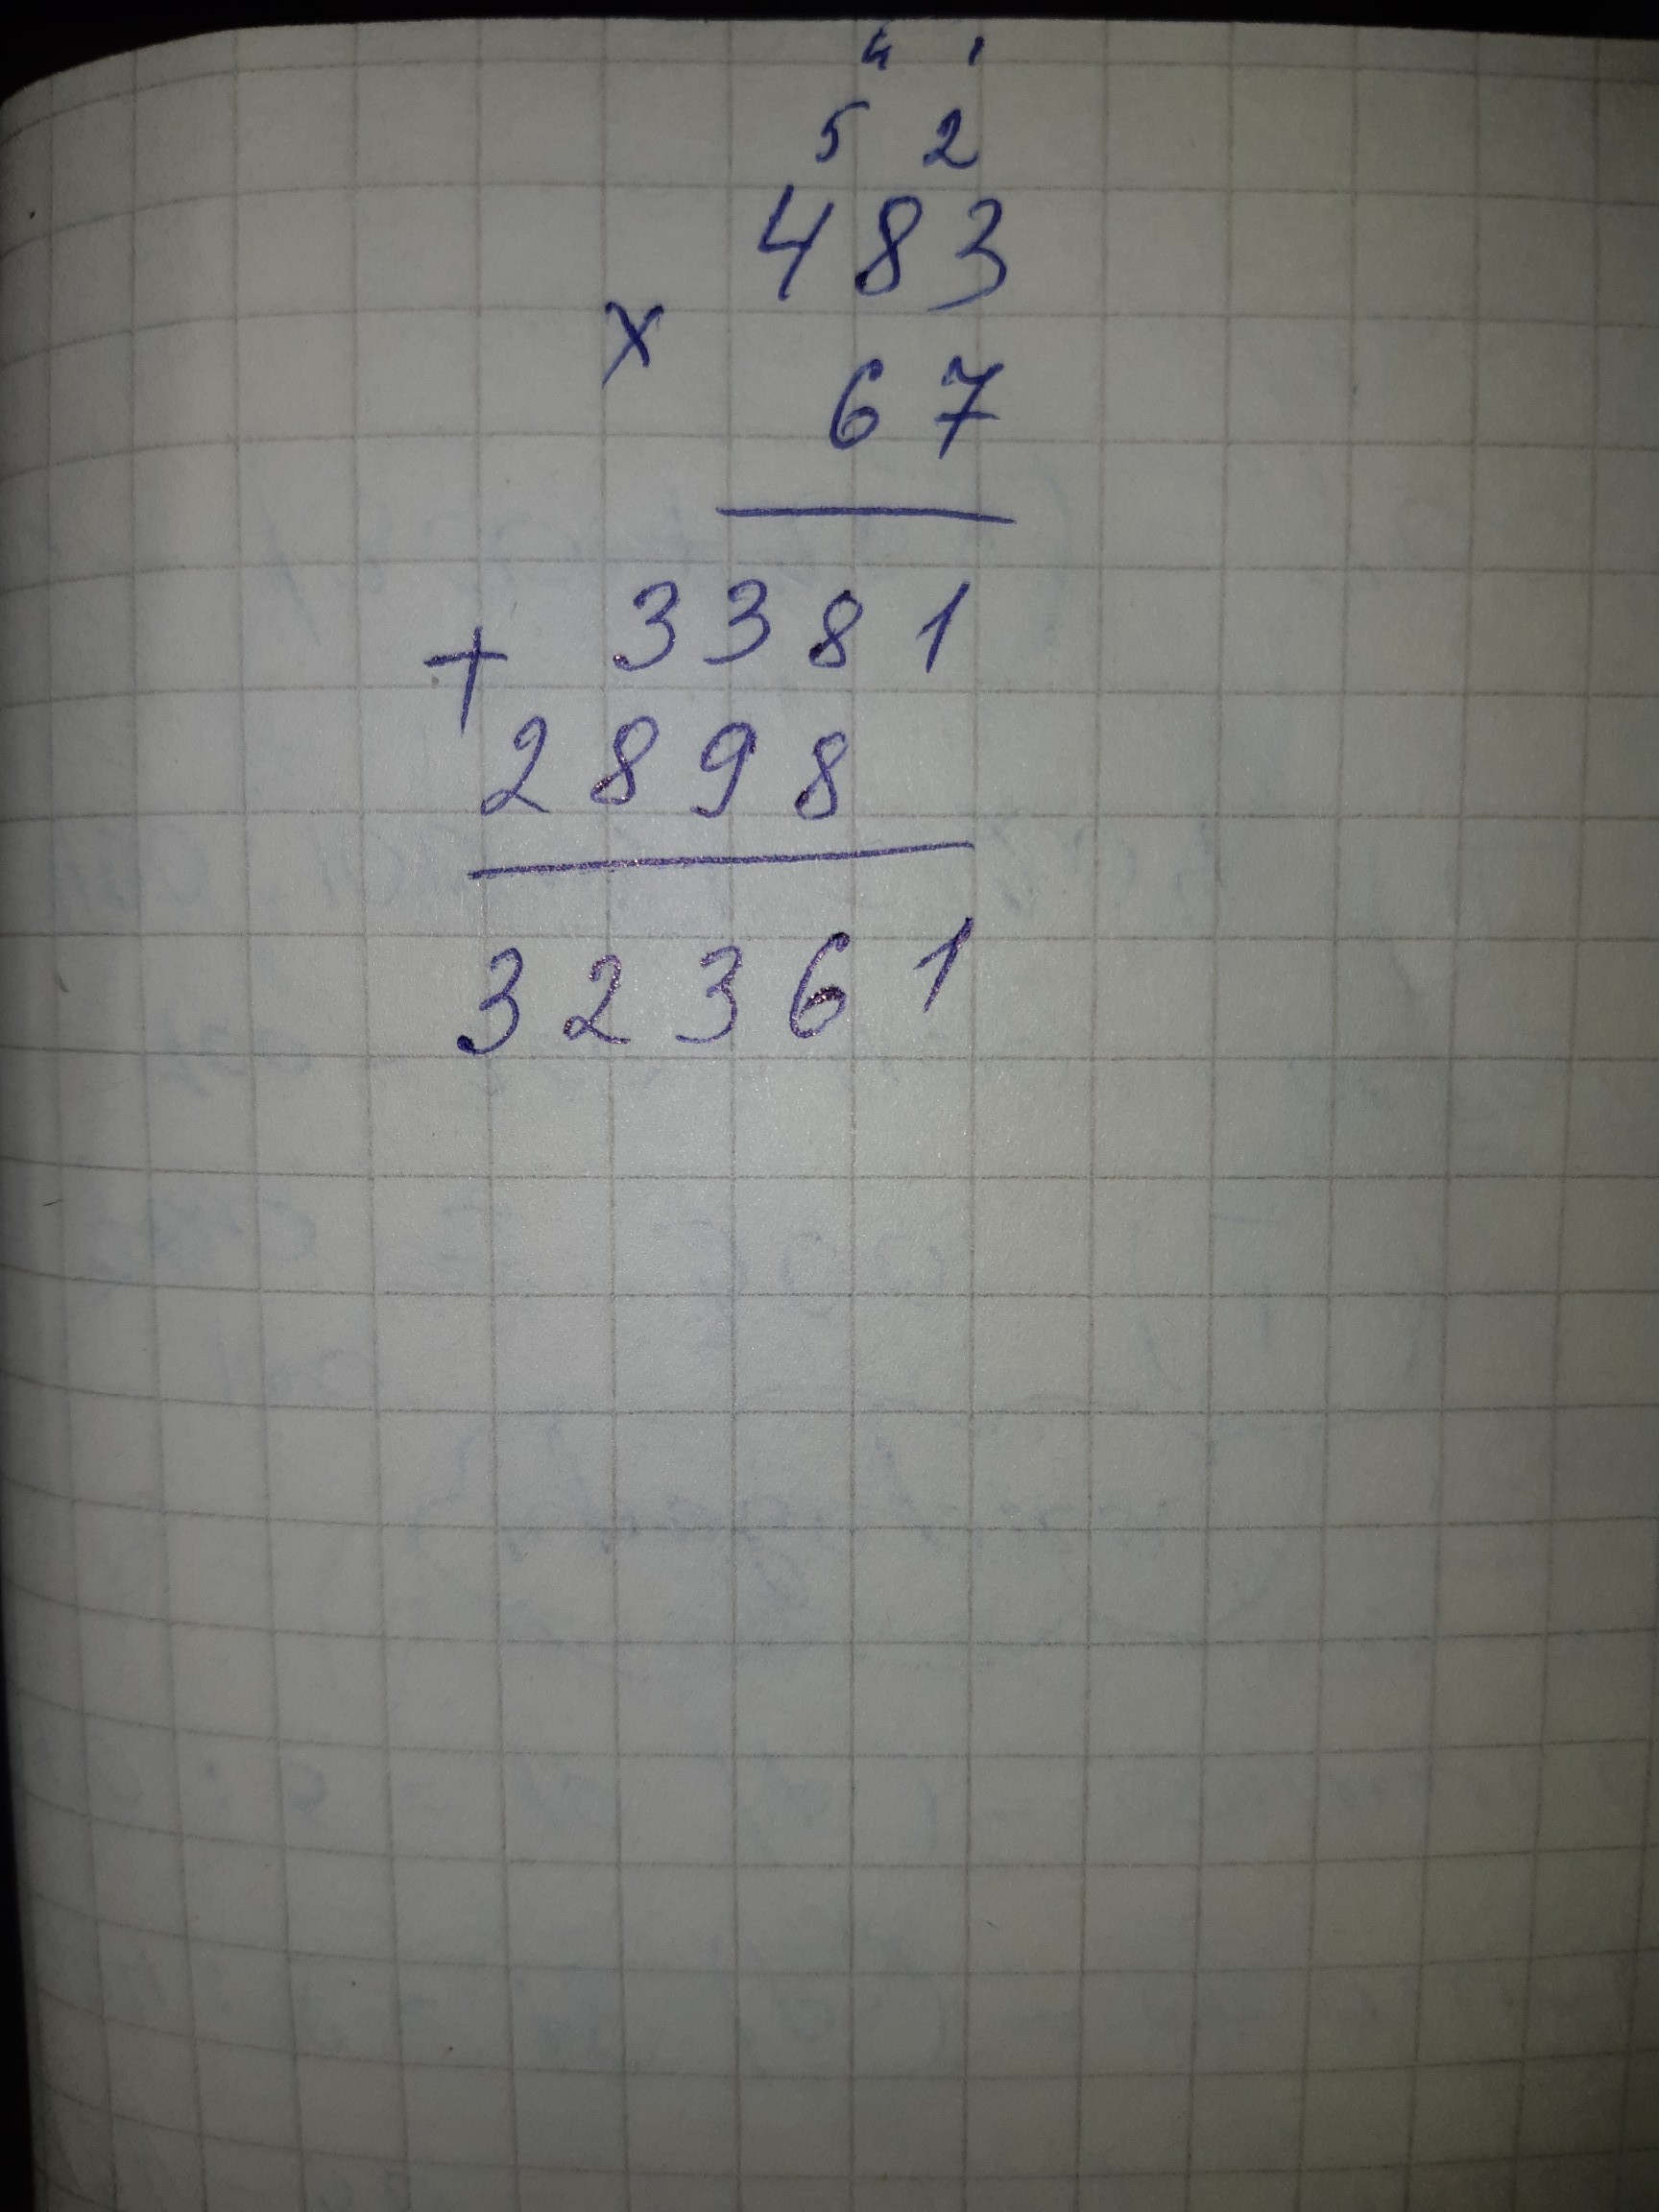 4 1
5 2
483
x
67
3381
+
2898
32361